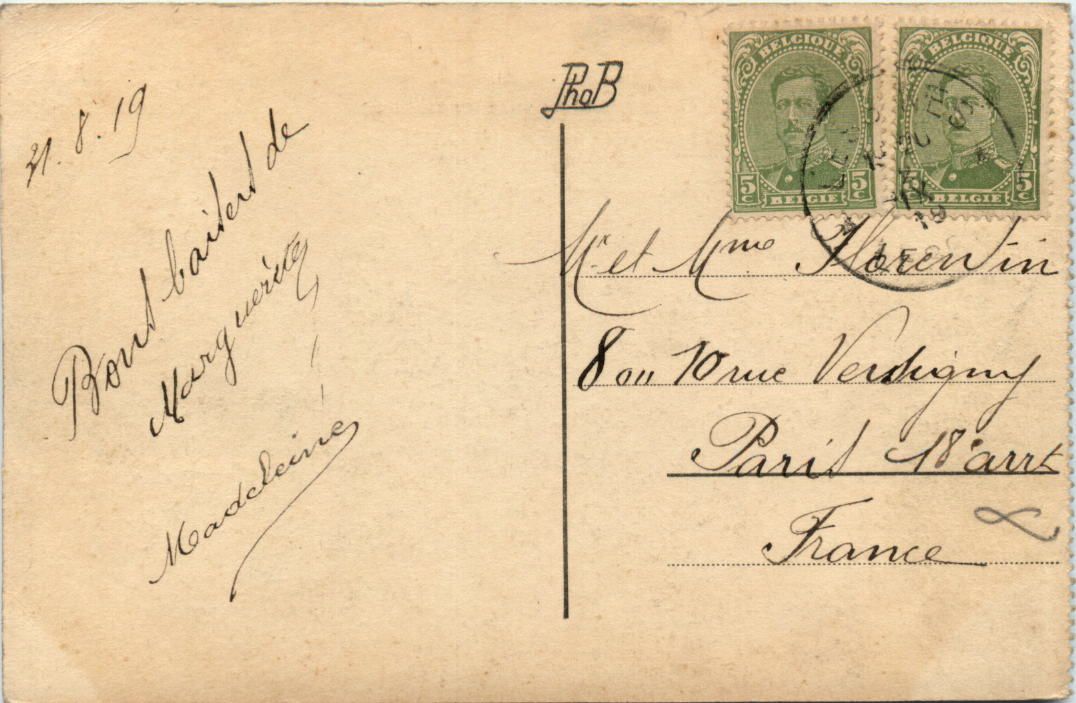 31.8.19
Bons baisers de
Marguerite
Madeleine
PhoB
BELGIQUE
5c 5c
BELGIE
BELGIQUE
5c 5c
BELGIE
Mr et Mme Florentin
8 ou 10 rue Versigny
Paris 18e arrt
France